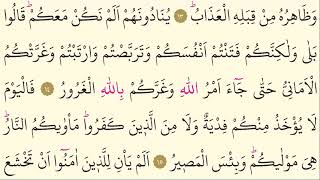 وَظَاهِرُهُ مِنْ قِبَلِهِ الْعَذَابُ ؕ ﴿۱۳﴾ يُنَادُونَهُمْ اَلَمْ نَكُنْ مَعَكُمْ ؕ قَالُوا
بَلٰى وَلٰكِنَّكُمْ فَتَنْتُمْ اَنْفُسَكُمْ وَتَرَبَّصْتُمْ وَارْتَبْتُمْ وَغَرَّتْكُمُ
الْاَمَانِيُّ حَتّٰى جَٓاءَ اَمْرُ اللّٰهِ وَغَرَّكُمْ بِاللّٰهِ الْغَرُورُ ﴿۱٤﴾ فَالْيَوْمَ
لَا يُؤْخَذُ مِنْكُمْ فِدْيَةٌ وَلَا مِنَ الَّذِينَ كَفَرُوا ؕ مَأْوٰيكُمُ النَّارُ ؕ
هِيَ مَوْلٰيكُمْ ؕ وَبِئْسَ الْمَصِيرُ ﴿۱٥﴾ اَلَمْ يَأْنِ لِلَّذِينَ اٰمَنُٓوا اَنْ تَخْشَعَ